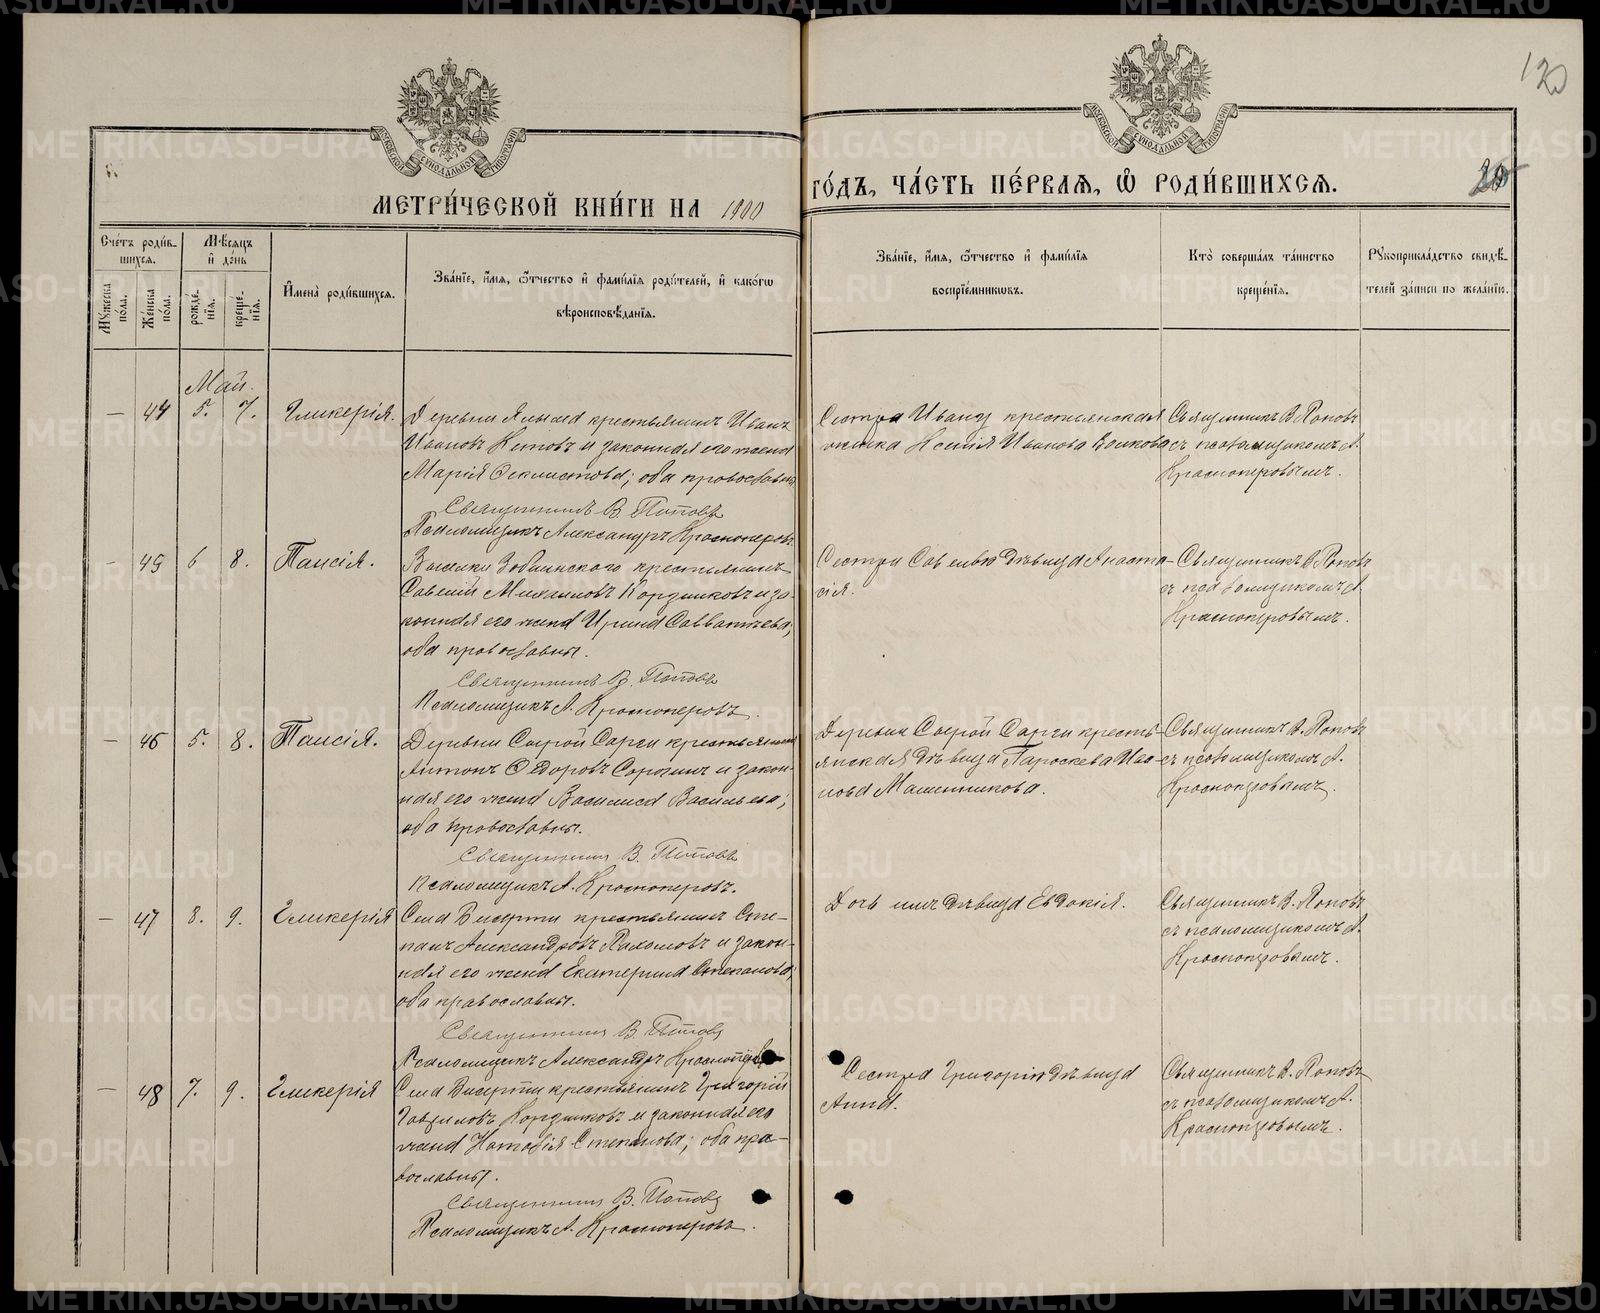 120
МОСКОВСКОЙ СѴНОДАЛЬНОЙ ТИПОГРАФІИ
МОСКОВСКОЙ СѴНОДАЛЬНОЙ ТИПОГРАФІИ
МЕТРИ́ЧЕСКОЙ КНИ́ГИ НА 1900 ГО́ДЪ, ЧА́СТЬ ПЕ́РВАЯ, Ѡ҆ РОДИ́ВШИХСЯ.
Сче́тъ роди́вшихся.
Мꙋ́жеска по́ла.
Же́нска по́ла.
Мѣ́сяцъ и҆ де́нь
рожде́нїя.
креще́нїя.
И҆мена̀ роди́вшихся.
Зва́нїе, и҆́мя, ѻ҆́тчество и҆ фами́лїя роди́телей, и҆ како́гѡ
вѣроисповѣ́данїя.
Зва́нїе, и҆́мя, ѻ҆́тчество и҆ фами́лїя
воспрїе́мникѡвъ.
Кто̀ соверша́лъ та́инство
креще́нїя.
Рꙋкоприкла́дство свидѣ́телей за́писи по жела́нїю.
Май.
— 44 5. 7. Гликерія.
крестьянинъ Иванъ
Ивановъ и законная его жена
Марія; оба православны
Священникъ В Поповъ
Псаломщикъ Александръ Красноперовъ
Сестра Ивану крестьянская
Иванова Волкова
Священникъ В. Поповъ
съ псаломщикомъ А.
Красноперовымъ.
— 45 6 8. Таисія.
крестьянинъ
Савелій Михаиловъ и за-
конная его жена Ирина Савватѣева,
оба православны.
Священникъ В. Поповъ
Псаломщикъ А. Красноперовъ.
Сестра Савелью дѣвица Анаста-
сія.
Священникъ В. Поповъ
съ псаломщикомъ А.
Красноперовымъ.
— 46 5. 8. Таисія.
Деревни Сухой Сарги крестьянинъ
Антонъ Ѳедоровъ Сорокинъ и закон-
ная его жена Василиса Васильева;
оба православны.
Священникъ В. Поповъ
Псаломщикъ А. Красноперовъ.
Деревни Сухой Сарги кресть-
янская дѣвица Параскева Ива-
нова
Священникъ В. Поповъ
съ псаломщикомъ А.
Красноперовымъ.
— 47 8. 9. Гликерія
Села Бисерти крестьянинъ Сте-
панъ Александровъ Пахомовъ и закон-
ная его жена Екатерина Степанова;
оба православны.
Священникъ В. Поповъ
Псаломщикъ Александръ Красноперовъ
Дочь ихъ дѣвица Евдокія.
Священникъ В. Поповъ
съ псаломщикомъ А.
Красноперовымъ.
— 48 7. 9. Гликерія
Села Бисерти крестьянинъ Григорій
Гавриловъ и законная его
жена Наталія Степанова; оба пра-
вославны.
Священникъ В. Поповъ
Псаломщикъ А. Красноперовъ.
Сестра Григорію дѣвица
Анна.
Священникъ В. Поповъ
съ псаломщикомъ А.
Красноперовымъ.
METRIKI.GASO-URAL.RU